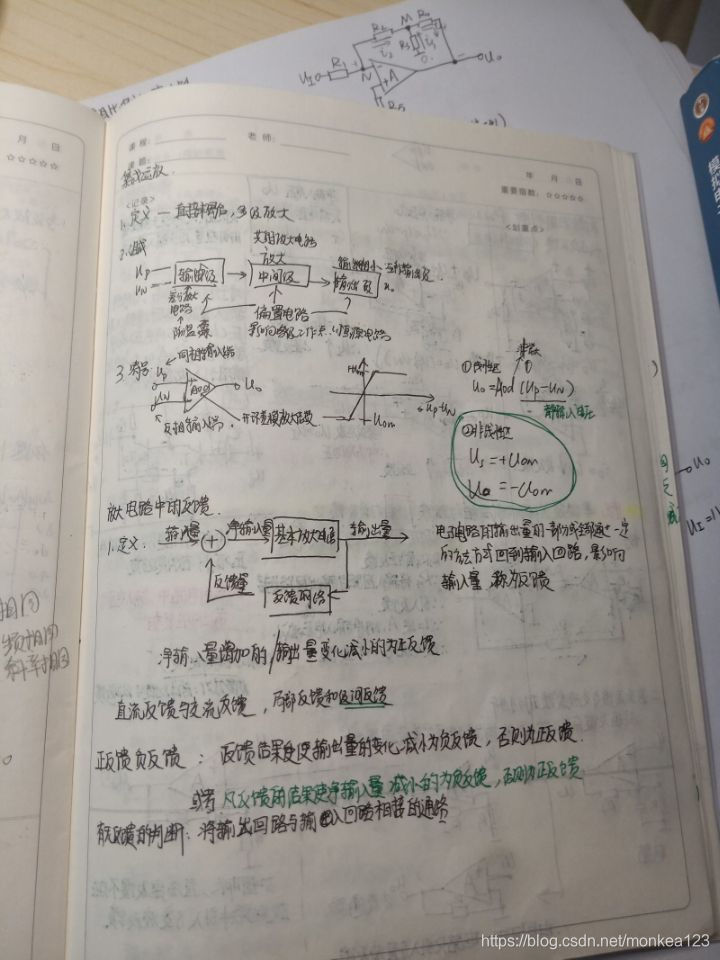 R₁ R₂ M R₄
R₃ i₂
uI N A uo
R₅
月 日
课程: 老师:
课题:
年 月 日
重要指数: ☆☆☆☆☆
集成运放.
<记录>
<划重点>
1. 定义 — 直接耦合, 多级放大
2. 组成
共射放大电路
放大
uP uN 输入级 中间级 输出级 uo
差分放大电路
偏置电路
抑温漂
3. 符号
uP 同相输入端
uN Aod uo
反相输入端 开环差模放大倍数
+Uom
-Uom
uP-uN
①线性区
uo=Aod(uP-uN)
净输入电压
②非线性区
Us=+Uom
=-Uom
放大电路中的反馈.
1. 定义: 输入量 + 净输入量 基本放大电路 输出量
反馈量 反馈网络
电子电路的输出量的一部分或全部通过一定
的方式回到输入回路, 影响
输入量 称为反馈
净输入量增加的/输出量变化减小的为正反馈
直流反馈与交流反馈, 局部反馈和级间反馈
正反馈负反馈: 反馈结果使输出量的变化减小为负反馈, 否则为正反馈.
或者 凡反馈的结果使净输入量减小的为负反馈, 否则为正反馈
有无反馈的判断: 将输出回路与输入回路相接的通路
https://blog.csdn.net/monkea123